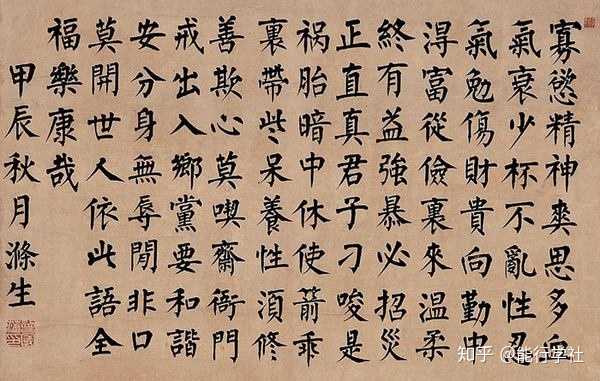 寡慾精神爽思多血
氣衰少杯不亂性忍
氣勉傷財貴向勤中
淂富從儉裏來温柔
終有益強暴必招災
正直真君子刁唆是
祸胎暗中休使箭乖
裏帶些呆養性湏修
善欺心莫喫齋衙門
戒出入鄉黨要和諧
安分身無辱閒非口
莫開世人依此語全
福樂康哉
甲辰秋月滌生
知乎 @能行学社